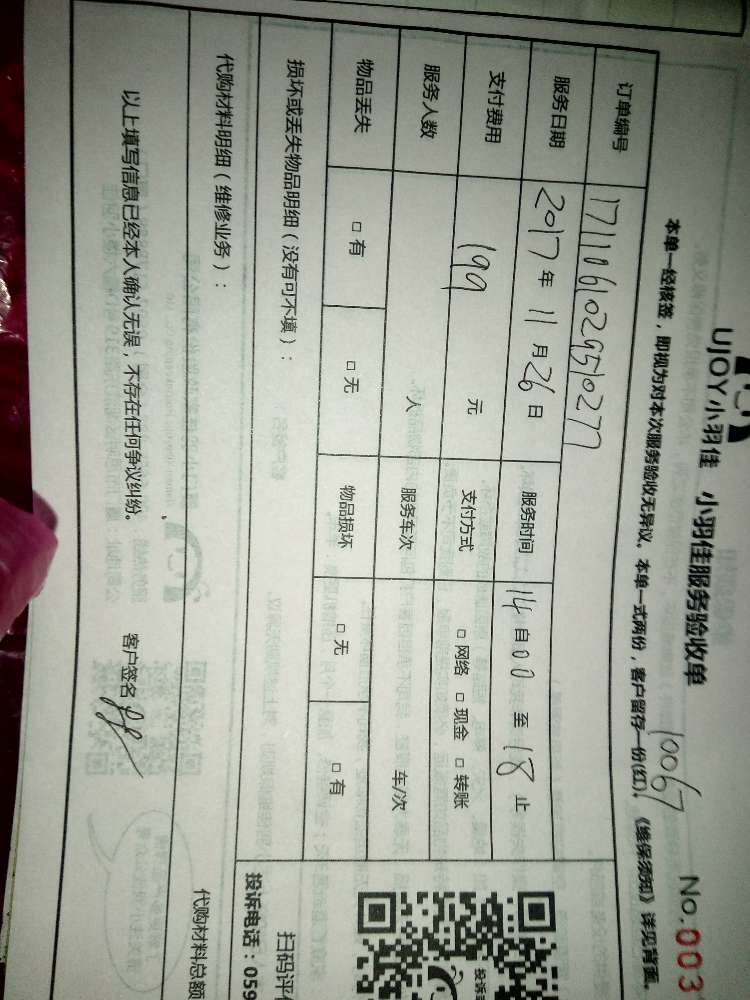 UJOY小羽佳 小羽佳服务验收单
10067
No.003
本单一经核签，即视为对本次服务验收无异议。本单一式两份，客户留存一份(红)。《维保须知》详见背面。
订单编号 1711061029510277
服务日期 2017年11月26日 服务时间 14自00至18止
支付费用 199元 支付方式 □网络 □现金 □转账
服务人数 人 服务车次 车/次
物品丢失 □有 □无 物品损坏 □无 □有
损坏或丢失物品明细（没有可不填）：
代购材料明细（维修业务）：
代购材料总额
以上填写信息已经本人确认无误，不存在任何争议纠纷。 客户签名
扫码评
投诉电话：059